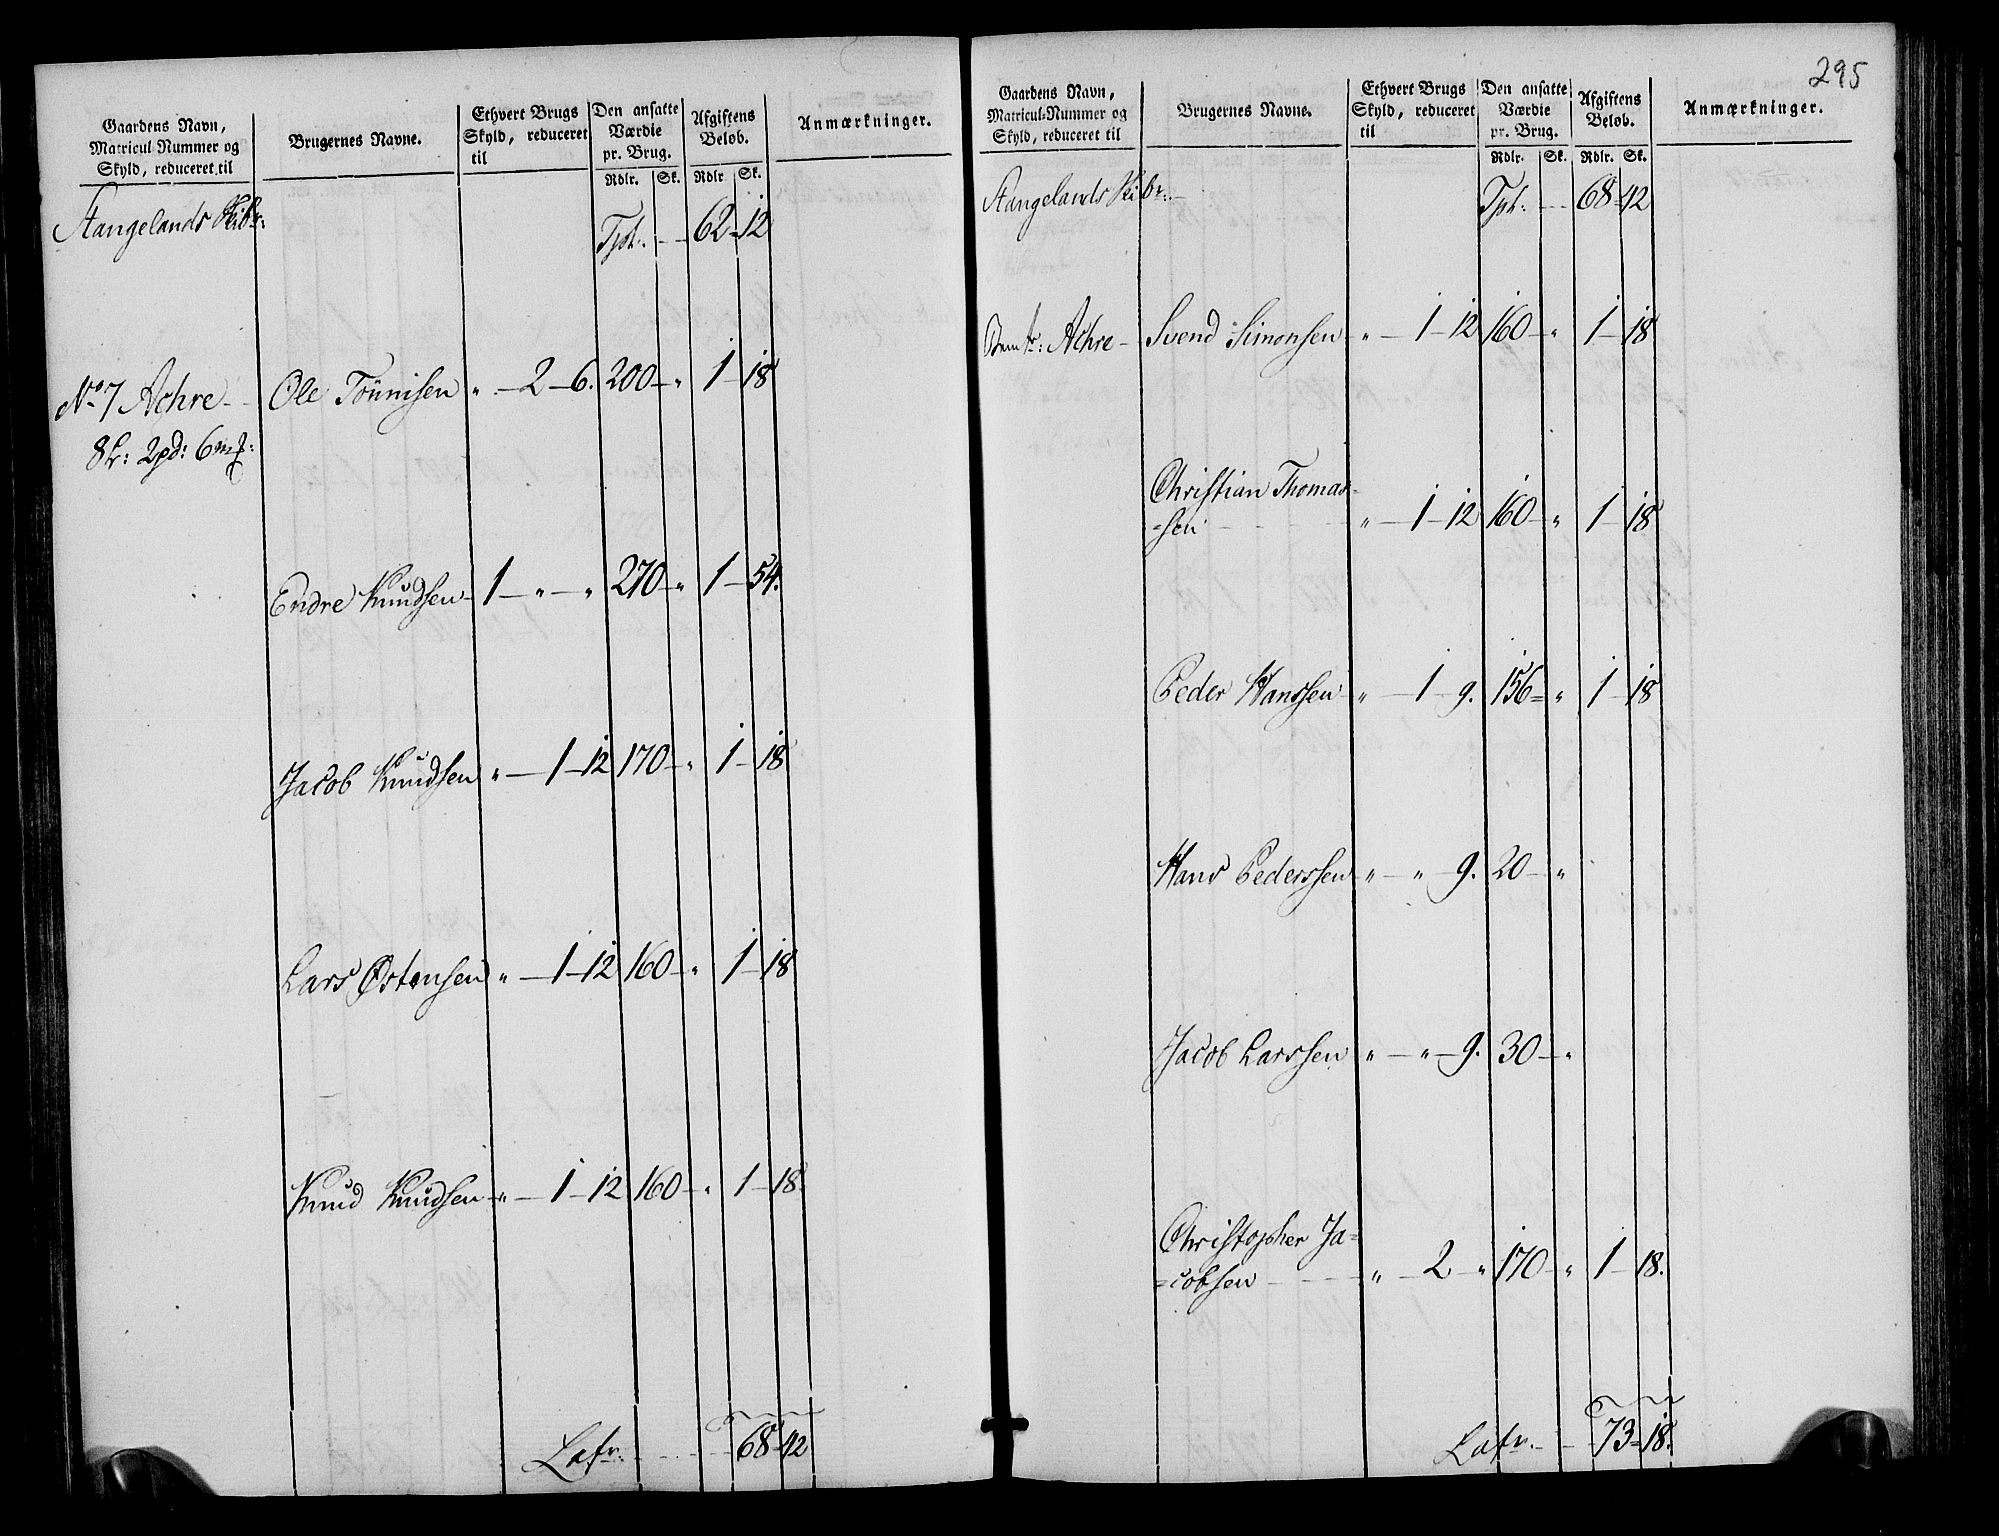 Gaardens Navn,
Matricul Nummer og
Skyld, reduceret til
Brugernes Navne.
Ethvert Brugs
Skyld, reduceret
til
Den ansatte
Værdie
pr. Brug.
Rdlr. Sk.
Afgiftens
Beløb.
Rdlr Sk.
Anmærkninger.
Stangelands Skibr:
Tpt. 62-12
No 7 Achre - Ole Tönnisen „ - 2 - 6. 200 - „ 1 - 18
8 Lr: 2pd: 6 mk:
Endre Knudsen - 1 - „ - „ 270 - „ 1 - 54.
Jacob Knudsen „ - 1 - 12 170 - „ 1 - 18
Lars Østensen „ - 1 - 12 160 - „ 1 - 18
Knud Knudsen - „ - 1 - 12 160 - „ 1 - 18.
Latr. 68-42
295
Gaardens Navn,
Matricul-Nummer og
Skyld, reduceret til
Brugernes Navne.
Ethvert Brugs
Skyld, reduceret
til
Den ansatte
Værdie
pr. Brug.
Rdlr. Sk.
Afgiftens
Beløb.
Rdlr. Sk.
Anmærkninger.
Stangelands Skibr:
Tpt. 68-42
Achre - Svend Simonsen „ - 1 - 12 160 - „ 1 - 18
Christian Thomas-
-sen „ - 1 - 12 160 - „ 1 - 18
Peder Hanssen „ - 1 - 9. 156 = „ 1 - 18
Hans Pederssen „ - „ - 9. 20 - „
Jacob Larssen „ - „ - 9. 30 - „
Christopher Ja=
=cobsen „ - 2 - „ 170 - „ 1 - 18.
Latr. 73-18.